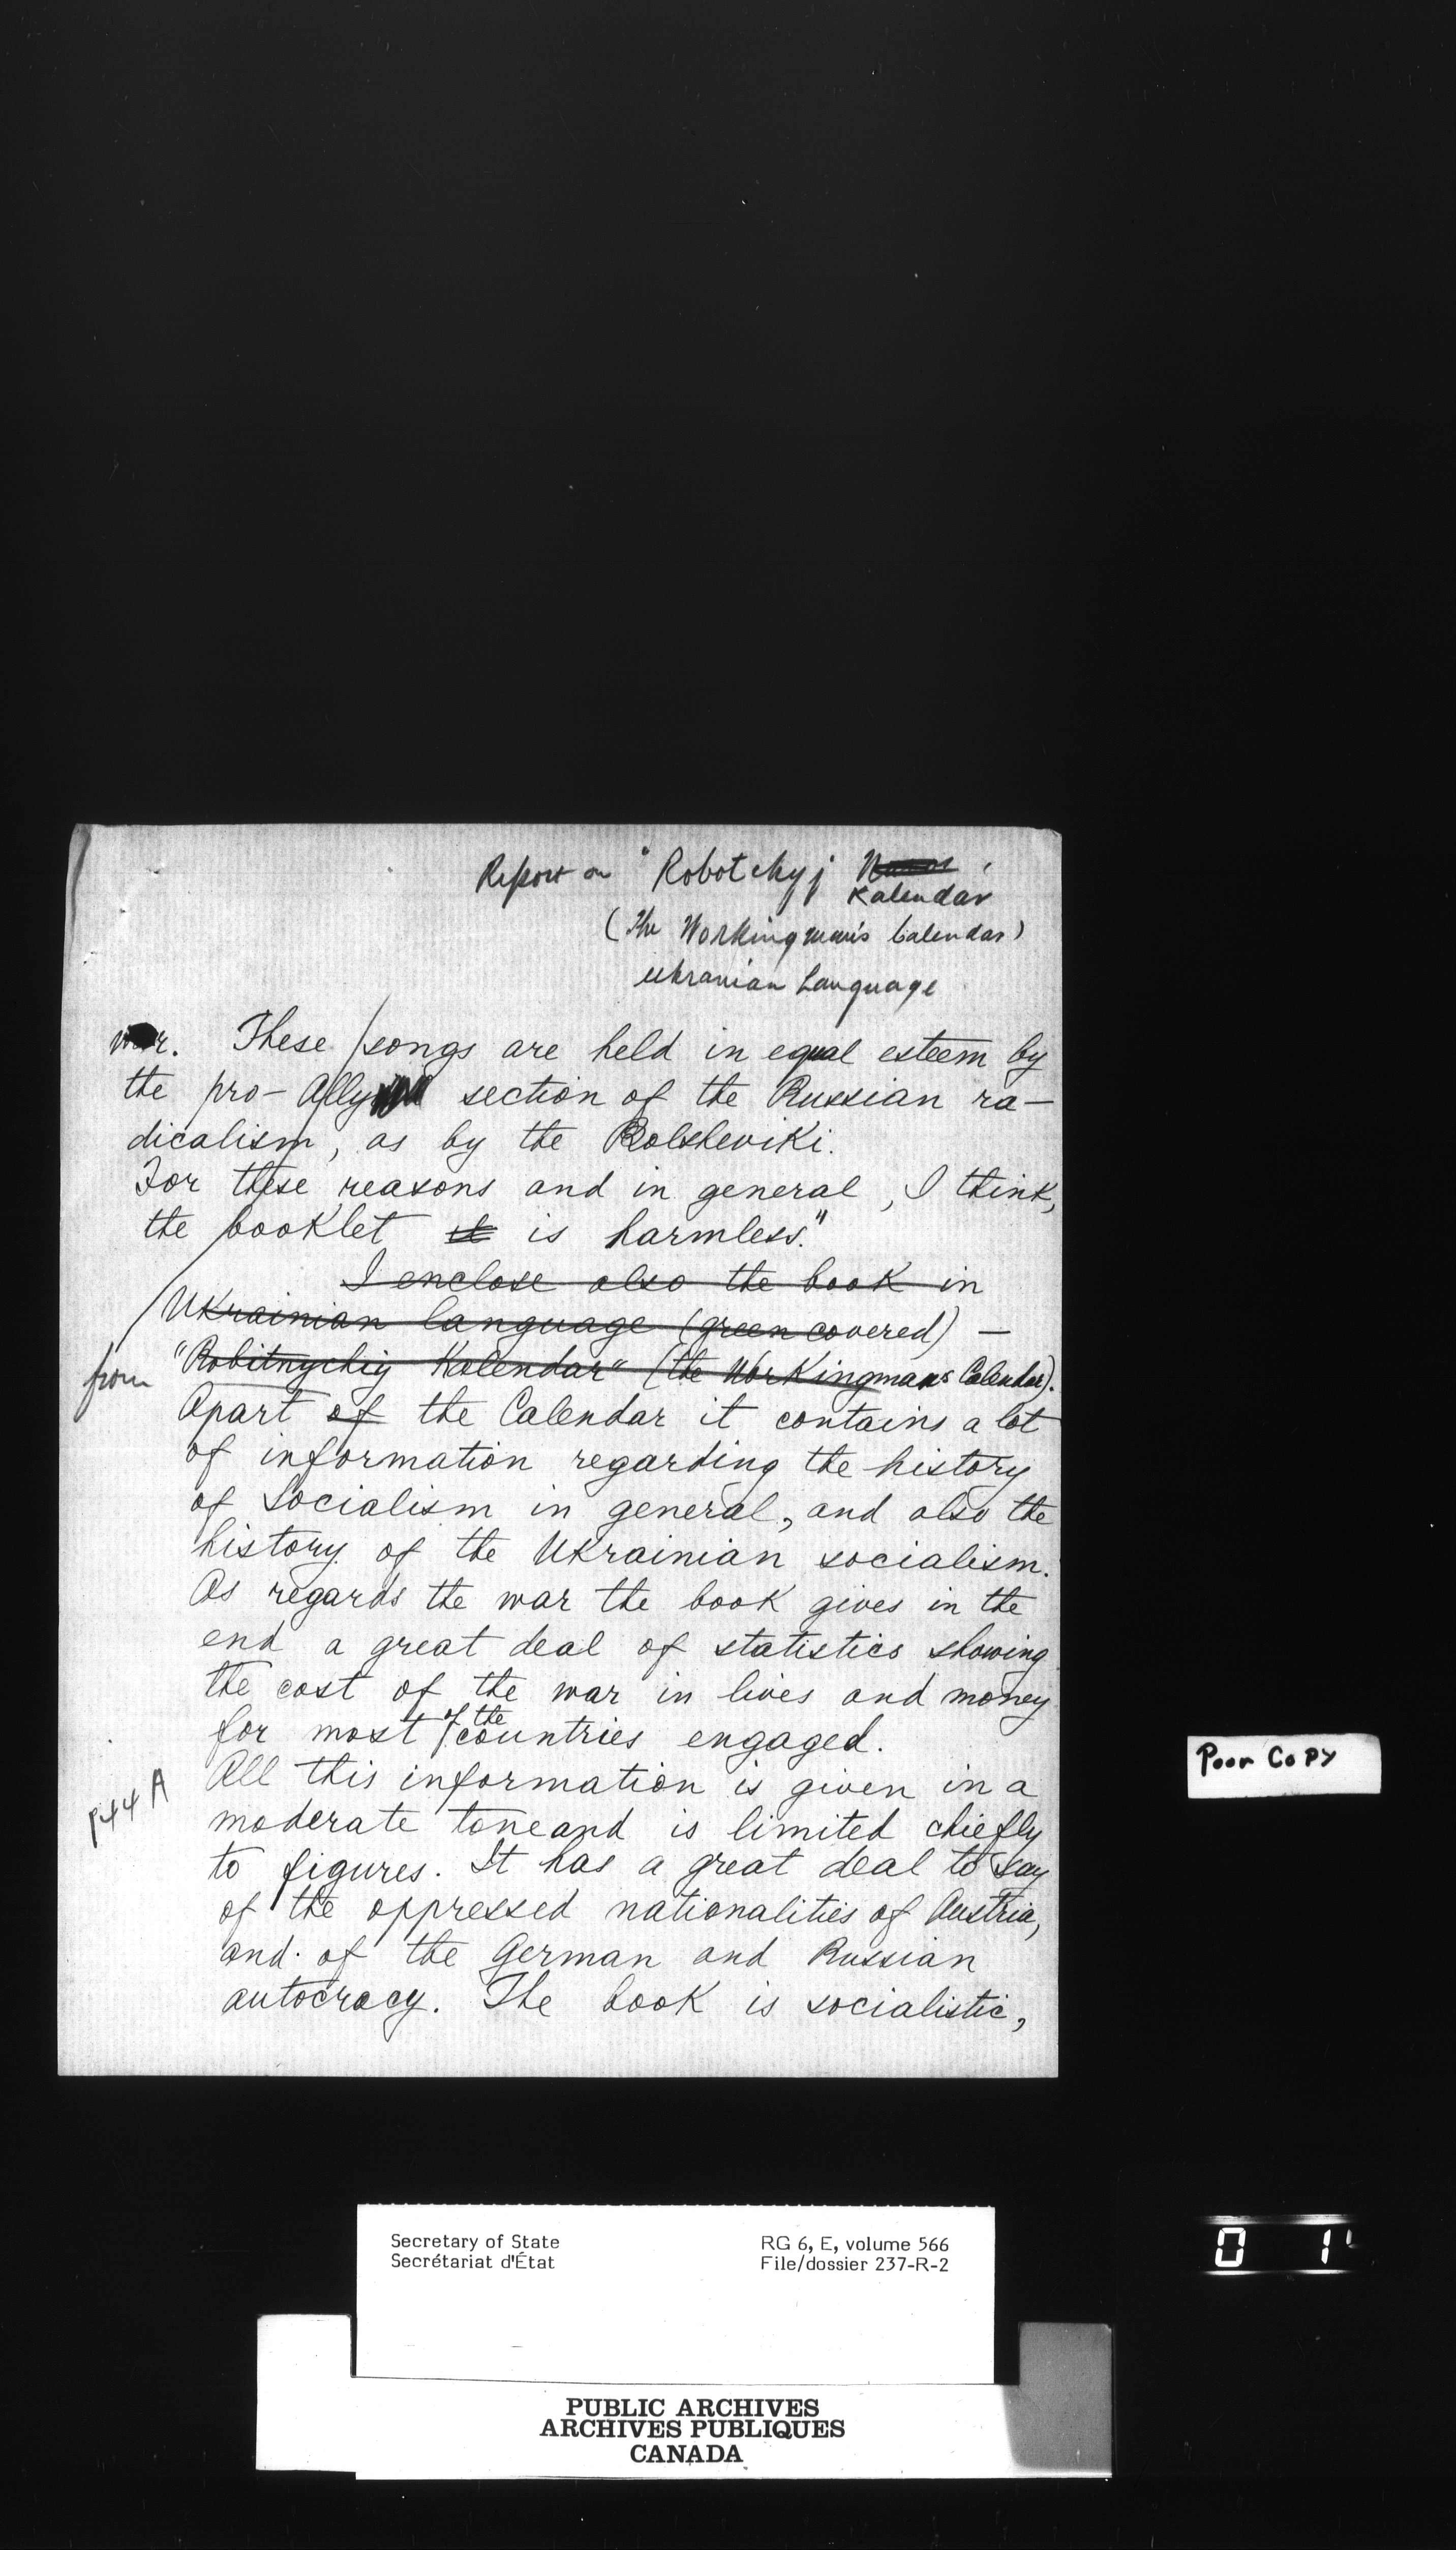 Report on "Robotchyj
Kalendar
(The Workingman's Calendar)
Ukranian Language
war. These songs are held in equal esteem by
the pro-Ally section of the Russian ra-
dicalism, as by the Bolsheviki.
For these reasons and in general, I think,
the booklet it is harmless."
I enclose also the book in
Ukrainian language (green covered) —
"Robitnychiy Kalendar" (the Workingmans Calendar).
from
Apart of the Calendar it contains a lot
of information regarding the history
of Socialism in general, and also the
history of the Ukrainian socialism.
As regards the war the book gives in the
end a great deal of statistics showing
the cost of the war in lives and money
for most of the countries engaged.
All this information is given in a
P44A
moderate tone and is limited chiefly
to figures. It has a great deal to say
of the oppressed nationalities of Austria,
and of the German and Russian
autocracy. The book is socialistic,
Poor Copy
Secretary of State
Secrétariat d'État
RG 6, E, volume 566
File/dossier 237-R-2
0 1
PUBLIC ARCHIVES
ARCHIVES PUBLIQUES
CANADA